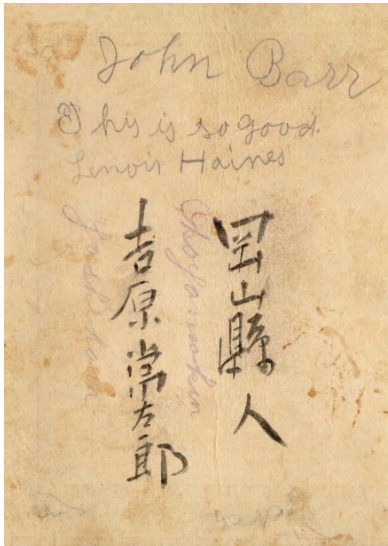 John Barr
This is so good.
Lenoir Haines
岡山縣人
吉原常太郎